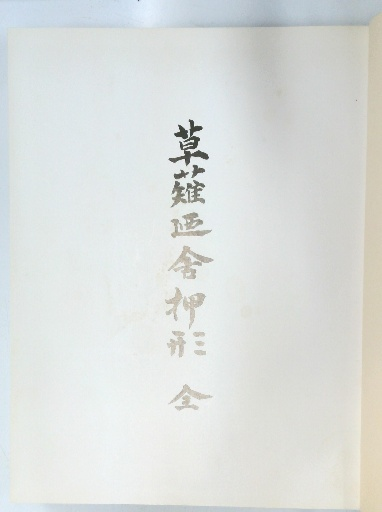 草薙廼舎押形 全